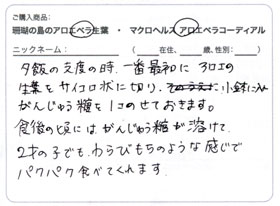 ご購入商品:
珊瑚の島のアロエベラ生葉 ・ マクロヘルスアロエベラコーディアル
ニックネーム: ( 在住、 歳、性別: )
夕飯の支度の時、一番最初に 3口の
生葉をサイコロ状に切り、小鉢に入れ
がんじゅう糖を1コのせておきます。
食後の頃にはがんじゅう糖が溶けて、
2才の子でも、わらびもちのような感じで
パクパク食べてくれます。